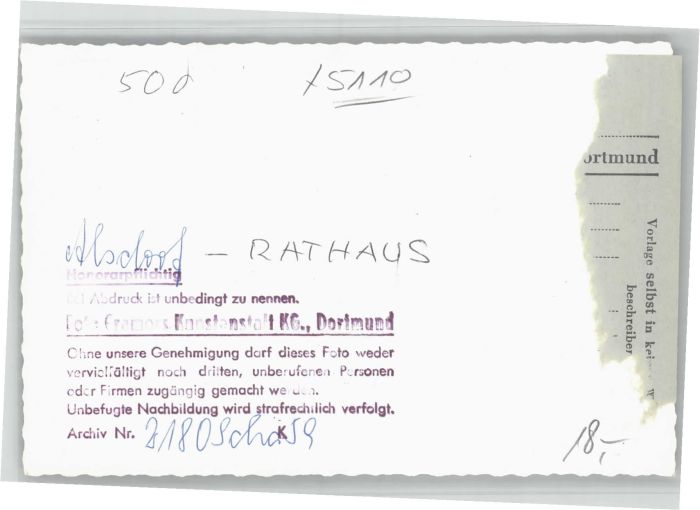 15110
Alsdorf - RATHAUS
Honorarpflichtig
Bei Abdruck ist unbedingt zu nennen.
Foto Cramers Kunstanstalt KG., Dortmund
Ohne unsere Genehmigung darf dieses Foto weder
vervielfältigt noch dritten, unberufenen Personen
oder Firmen zugängig gemacht werden.
Unbefugte Nachbildung wird strafrechtlich verfolgt.
Archiv Nr.
K
18,-
ortmund
Vorlage selbst in kei
beschreiben